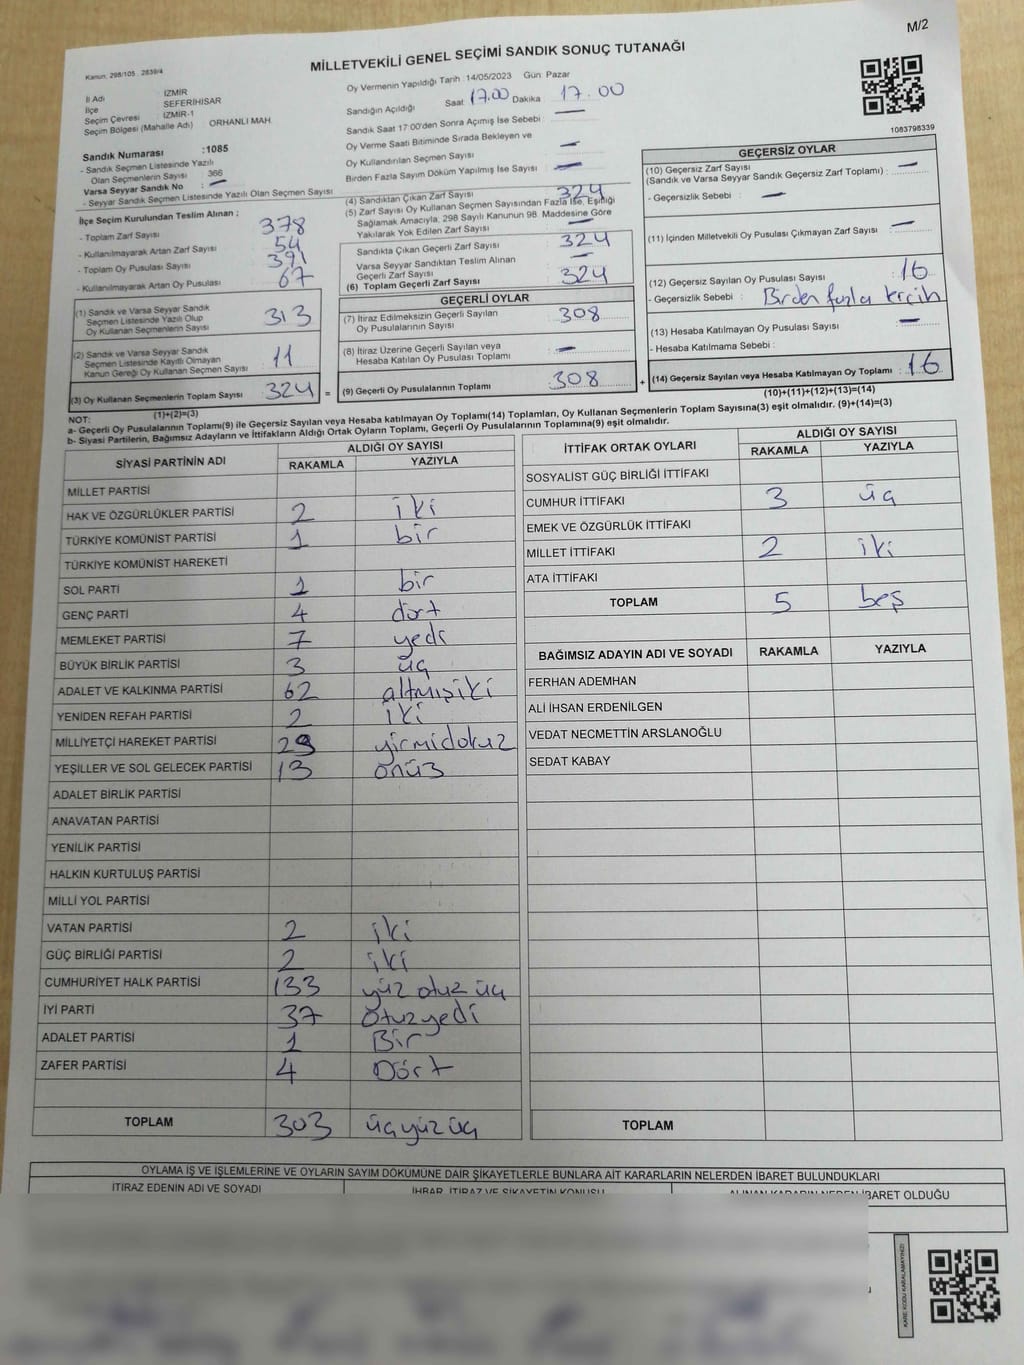 M/2
MİLLETVEKİLİ GENEL SEÇİMİ SANDIK SONUÇ TUTANAĞI
Kanun: 298/105, 2839/4
İl Adı : İZMİR
İlçe : SEFERİHİSAR
Seçim Çevresi : İZMİR-1
Seçim Bölgesi (Mahalle Adı) ORHANLI MAH.
Sandık Numarası :1085
- Sandık Seçmen Listesinde Yazılı
Olan Seçmenlerin Sayısı : 366
Varsa Seyyar Sandık No : -
- Seyyar Sandık Seçmen Listesinde Yazılı Olan Seçmen Sayısı
Oy Vermenin Yapıldığı Tarih :14/05/2023 Gün: Pazar
Sandığın Açıldığı Saat 17.00 Dakika 17.00
Sandık Saat 17:00'den Sonra Açımış İse Sebebi : -
Oy Verme Saati Bitiminde Sırada Bekleyen ve
Oy Kullandırılan Seçmen Sayısı -
Birden Fazla Sayım Döküm Yapılmış İse Sayısı : -
1083798339
İlçe Seçim Kurulundan Teslim Alınan ;
- Toplam Zarf Sayısı : 378
- Kullanılmayarak Artan Zarf Sayısı : 54
- Toplam Oy Pusulası Sayısı : 391
- Kullanılmayarak Artan Oy Pusulası : 67
(1) Sandık ve Varsa Seyyar Sandık
Seçmen Listesinde Yazılı Olup
Oy Kullanan Seçmenlerin Sayısı : 313
(2) Sandık ve Varsa Seyyar Sandık
Seçmen Listesinde Kayıtlı Olmayan
Kanun Gereği Oy Kullanan Seçmen Sayısı : 11
(3) Oy Kullanan Seçmenlerin Toplam Sayısı : 324
(1)+(2)=(3)
(4) Sandıktan Çıkan Zarf Sayısı : 324
(5) Zarf Sayısı Oy Kullanan Seçmen Sayısından Fazla İse, Eşitliği
Sağlamak Amacıyla, 298 Sayılı Kanunun 98. Maddesine Göre
Yakılarak Yok Edilen Zarf Sayısı : -
Sandıkta Çıkan Geçerli Zarf Sayısı : 324
Varsa Seyyar Sandıktan Teslim Alınan
Geçerli Zarf Sayısı : -
(6) Toplam Geçerli Zarf Sayısı : 324
GEÇERLİ OYLAR
(7) İtiraz Edilmeksizin Geçerli Sayılan
Oy Pusulalarının Sayısı : 308
(8) İtiraz Üzerine Geçerli Sayılan veya
Hesaba Katılan Oy Pusulası Toplamı : -
= (9) Geçerli Oy Pusulalarının Toplamı : 308 +
GEÇERSİZ OYLAR
(10) Geçersiz Zarf Sayısı
(Sandık ve Varsa Seyyar Sandık Geçersiz Zarf Toplamı) : -
- Geçersizlik Sebebi : -
(11) İçinden Milletvekili Oy Pusulası Çıkmayan Zarf Sayısı : -
(12) Geçersiz Sayılan Oy Pusulası Sayısı : 16
- Geçersizlik Sebebi : Birden fazla tercih
(13) Hesaba Katılmayan Oy Pusulası Sayısı : -
- Hesaba Katılmama Sebebi :
(14) Geçersiz Sayılan veya Hesaba Katılmayan Oy Toplamı : 16
(10)+(11)+(12)+(13)=(14)
NOT:
a- Geçerli Oy Pusulalarının Toplamı(9) ile Geçersiz Sayılan veya Hesaba katılmayan Oy Toplamı(14) Toplamları, Oy Kullanan Seçmenlerin Toplam Sayısına(3) eşit olmalıdır. (9)+(14)=(3)
b- Siyasi Partilerin, Bağımsız Adayların ve İttifakların Aldığı Ortak Oyların Toplamı, Geçerli Oy Pusulalarının Toplamına(9) eşit olmalıdır.
SİYASİ PARTİNİN ADI ALDIĞI OY SAYISI
RAKAMLA YAZIYLA
MİLLET PARTİSİ
HAK VE ÖZGÜRLÜKLER PARTİSİ 2 iki
TÜRKİYE KOMÜNİST PARTİSİ 1 bir
TÜRKİYE KOMÜNİST HAREKETİ
SOL PARTİ 1 bir
GENÇ PARTİ 4 dört
MEMLEKET PARTİSİ 7 yedi
BÜYÜK BİRLİK PARTİSİ 3 üç
ADALET VE KALKINMA PARTİSİ 62 altmışiki
YENİDEN REFAH PARTİSİ 2 iki
MİLLİYETÇİ HAREKET PARTİSİ 29 yirmidokuz
YEŞİLLER VE SOL GELECEK PARTİSİ 13 onüç
ADALET BİRLİK PARTİSİ
ANAVATAN PARTİSİ
YENİLİK PARTİSİ
HALKIN KURTULUŞ PARTİSİ
MİLLİ YOL PARTİSİ
VATAN PARTİSİ 2 iki
GÜÇ BİRLİĞİ PARTİSİ 2 iki
CUMHURİYET HALK PARTİSİ 133 yüz otuz üç
İYİ PARTİ 37 Otuzyedi
ADALET PARTİSİ 1 Bir
ZAFER PARTİSİ 4 Dört
TOPLAM 303 üçyüzüç
İTTİFAK ORTAK OYLARI ALDIĞI OY SAYISI
RAKAMLA YAZIYLA
SOSYALİST GÜÇ BİRLİĞİ İTTİFAKI
CUMHUR İTTİFAKI 3 üç
EMEK VE ÖZGÜRLÜK İTTİFAKI
MİLLET İTTİFAKI 2 iki
ATA İTTİFAKI
TOPLAM 5 beş
BAĞIMSIZ ADAYIN ADI VE SOYADI RAKAMLA YAZIYLA
FERHAN ADEMHAN
ALİ İHSAN ERDENİLGEN
VEDAT NECMETTİN ARSLANOĞLU
SEDAT KABAY
TOPLAM
OYLAMA İŞ VE İŞLEMLERİNE VE OYLARIN SAYIM DÖKÜMÜNE DAİR ŞİKAYETLERLE BUNLARA AİT KARARLARIN NELERDEN İBARET BULUNDUKLARI
İTİRAZ EDENİN ADI VE SOYADI İHBAR, İTİRAZ VE ŞİKAYETİN KONUSU ALINAN KARARIN NEDEN İBARET OLDUĞU
KARE KODU KARALAMAYINIZ!